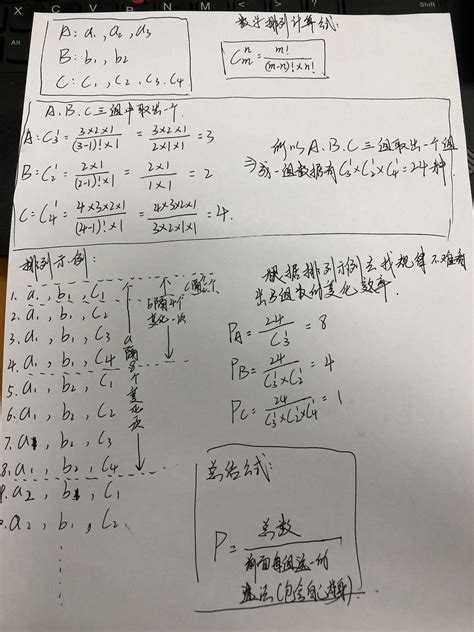 A: a₁, a₂, a₃
B: b₁, b₂
C: C₁, C₂, C₃, C₄
数学排列计算公式:
Cₘⁿ = m! / (m-n)! × n!
A、B、C三组中取出一个
A: C₃¹ = 3×2×1 / (3-1)!×1 = 3×2×1 / 2×1×1 = 3
B: C₂¹ = 2×1 / (2-1)!×1 = 2×1 / 1×1 = 2
C: C₄¹ = 4×3×2×1 / (4-1)!×1 = 4×3×2×1 / 3×2×1×1 = 4.
所以A、B、C三组取出一个组
⇒ 成一组数据有C₃¹×C₂¹×C₄¹=24种
排列示例:
1. a₁, b₁, C₁
2. a₁, b₁, C₂
3. a₁, b₁, C₃
4. a₁, b₁, C₄
5. a₁, b₂, C₁
6. a₁, b₂, C₂
7. a₁, b₂, C₃
8. a₁, b₂, C₄
9. a₂, b₁, C₁
a₂, b₁, C₂
a隔8个变化一次
b隔4个变化一次
根据排列示例去找规律 不难看
出3组数的变化频率.
P_A = 24 / C₃¹ = 8
P_B = 24 / C₃¹×C₂¹ = 4
P_C = 24 / C₃¹×C₂¹×C₄¹ = 1
总结公式:
P = 总数 / 前面每组选一的
选法(包含自己